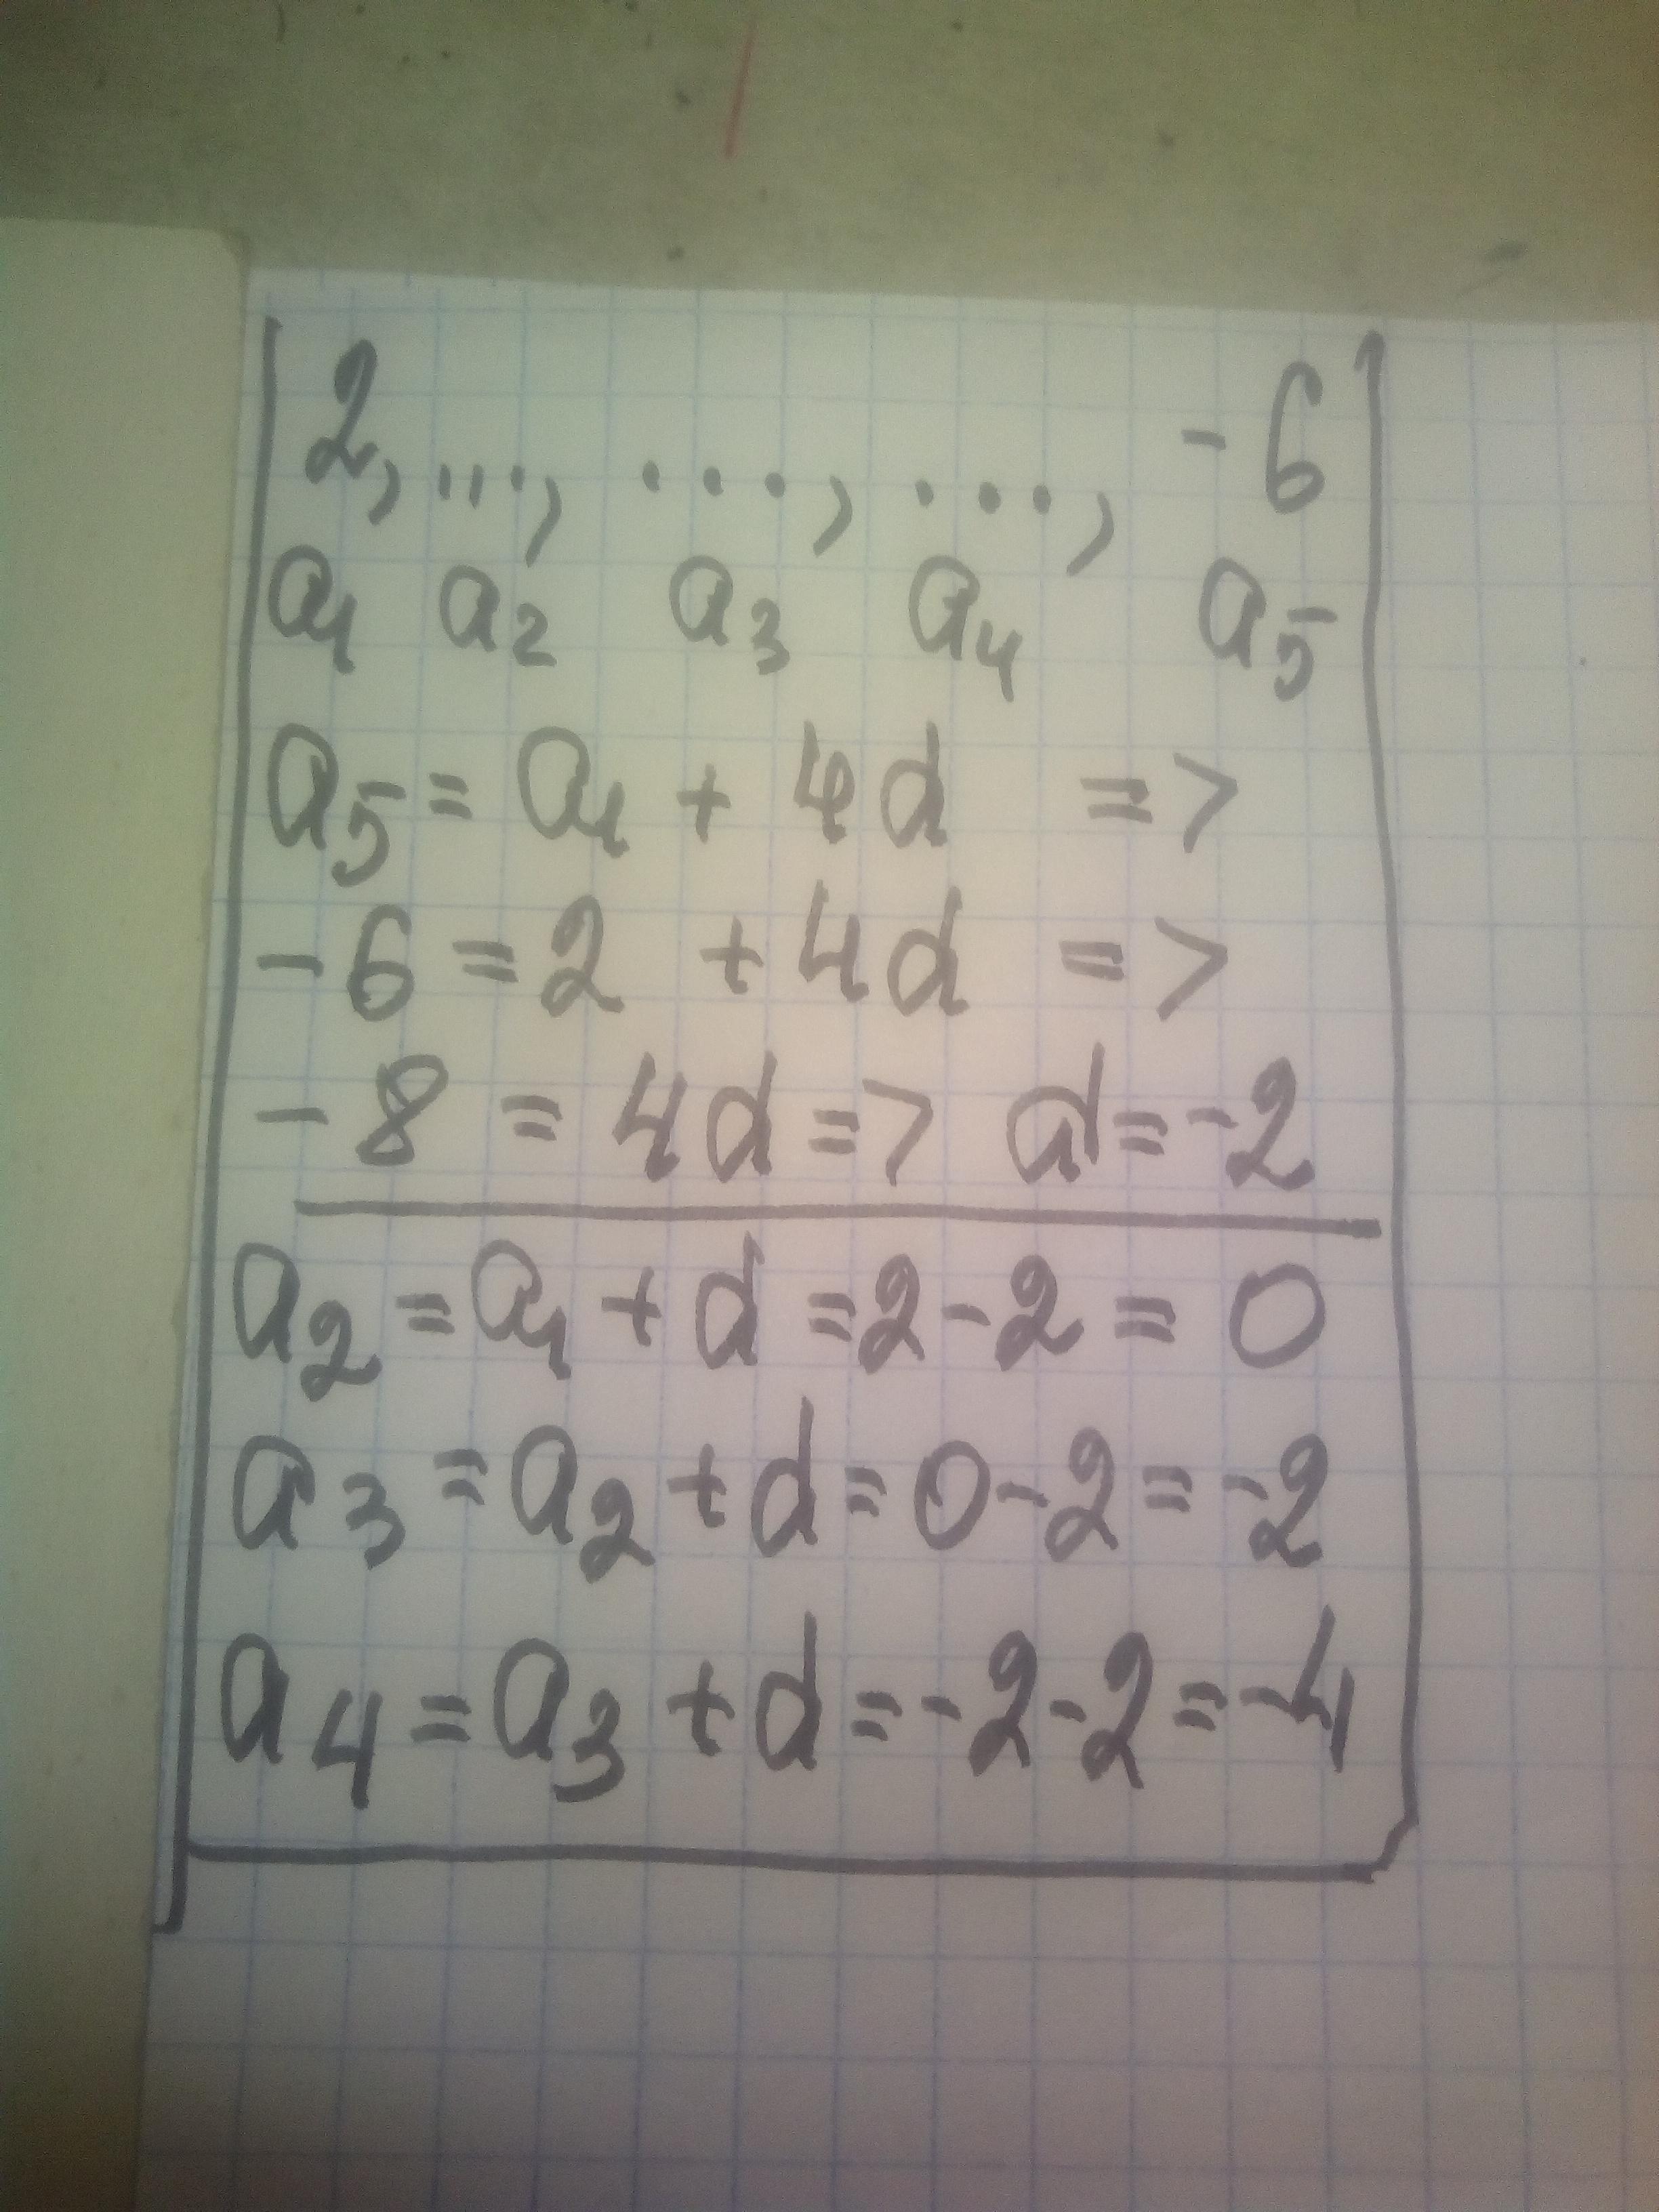 2, ..., ..., ..., -6
a1 a2 a3 a4 a5
a5 = a1 + 4d =>
-6 = 2 + 4d =>
-8 = 4d => d = -2
a2 = a1 + d = 2 - 2 = 0
a3 = a2 + d = 0 - 2 = -2
a4 = a3 + d = -2 - 2 = -4